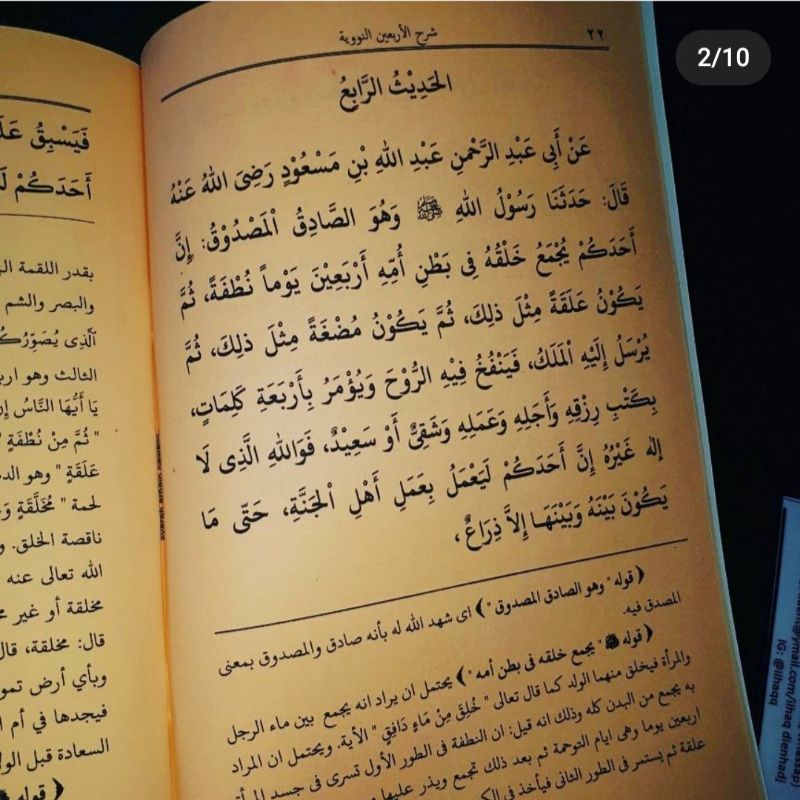 2/10
شرح الأربعين النووية ٢٢
الحَدِيْثُ الرَّابِعُ
عَنْ أَبِي عَبْدِ الرَّحْمنِ عَبْدِ اللهِ بْنِ مَسْعُوْدٍ رَضِىَ اللهُ عَنْهُ
قَالَ: حَدَثَنَا رَسُوْلُ اللهِ ﷺ وَهُوَ الصَّادِقُ الْمَصْدُوْقُ: إِنَّ
أَحَدَكُمْ يُجْمَعُ خَلْقُهُ فِى بَطْنِ أُمِّهِ أَرْبَعِيْنَ يَوْماً نُطْفَةً، ثُمَّ
يَكُوْنُ عَلَقَةً مِثْلَ ذلِكَ، ثُمَّ يَكُوْنُ مُضْغَةً مِثْلَ ذلِكَ، ثُمَّ
يُرْسَلُ إِلَيْهِ الْمَلَكُ، فَيَنْفُخُ فِيْهِ الرُّوْحَ وَيُؤْمَرُ بِأَرْبَعَةِ كَلِمَاتٍ،
بِكَتْبِ رِزْقِهِ وَأَجَلِهِ وَعَمَلِهِ وَشَقِىٌّ أَوْ سَعِيْدٌ، فَوَاللهِ الَّذِى لَا
إِلهَ غَيْرُهُ إِنَّ أَحَدَكُمْ لَيَعْمَلُ بِعَمَلِ أَهْلِ الْجَنَّةِ، حَتّى مَا
يَكُوْنَ بَيْنَهُ وَبَيْنَهَا إِلاَّ ذِرَاعٌ،
﴿ قوله " وهو الصادق المصدوق " ﴾ اى شهد الله له بأنه صادق والمصدوق بمعنى
المصدق فيه.
﴿ قوله ﷺ " يجمع خلقه فى بطن أمه " ﴾ يحتمل ان يراد انه يجمع بين ماء الرجل
والمرأة فيخلق منهما الولد كما قال تعالى " خُلِقَ مِنْ مَاءٍ دَافِقٍ " الأية. ويحتمل ان المراد
به يجمع من البدن كله وذلك انه قيل: ان النطفة فى الطور الأول تسرى فى جسد المرأة
اربعين يوما وهى ايام التوحمة ثم بعد ذلك تجمع ويذر عليها
علقة ثم يستمر فى الطور الثانى فيأخذ فى
فَيَسْبِقُ
أَحَدَكُمْ
بقدر اللقمة
والبصر والشم
الَّذِى يُصَوِّرُكُ
الثالث وهو
يَا أَيُّهَا النَّاسُ
" ثُمَّ مِنْ نُطْفَةٍ
عَلَقَةٍ " وهو
لحمة " مُخَلَّقَةٍ
ناقصة الخلق.
الله تعالى عنه
مخلقة أو غير
قال: مخلقة،
وبأي أرض
فيجدها في أم
السعادة قبل
﴿ قوله
IG: @ilhaqq